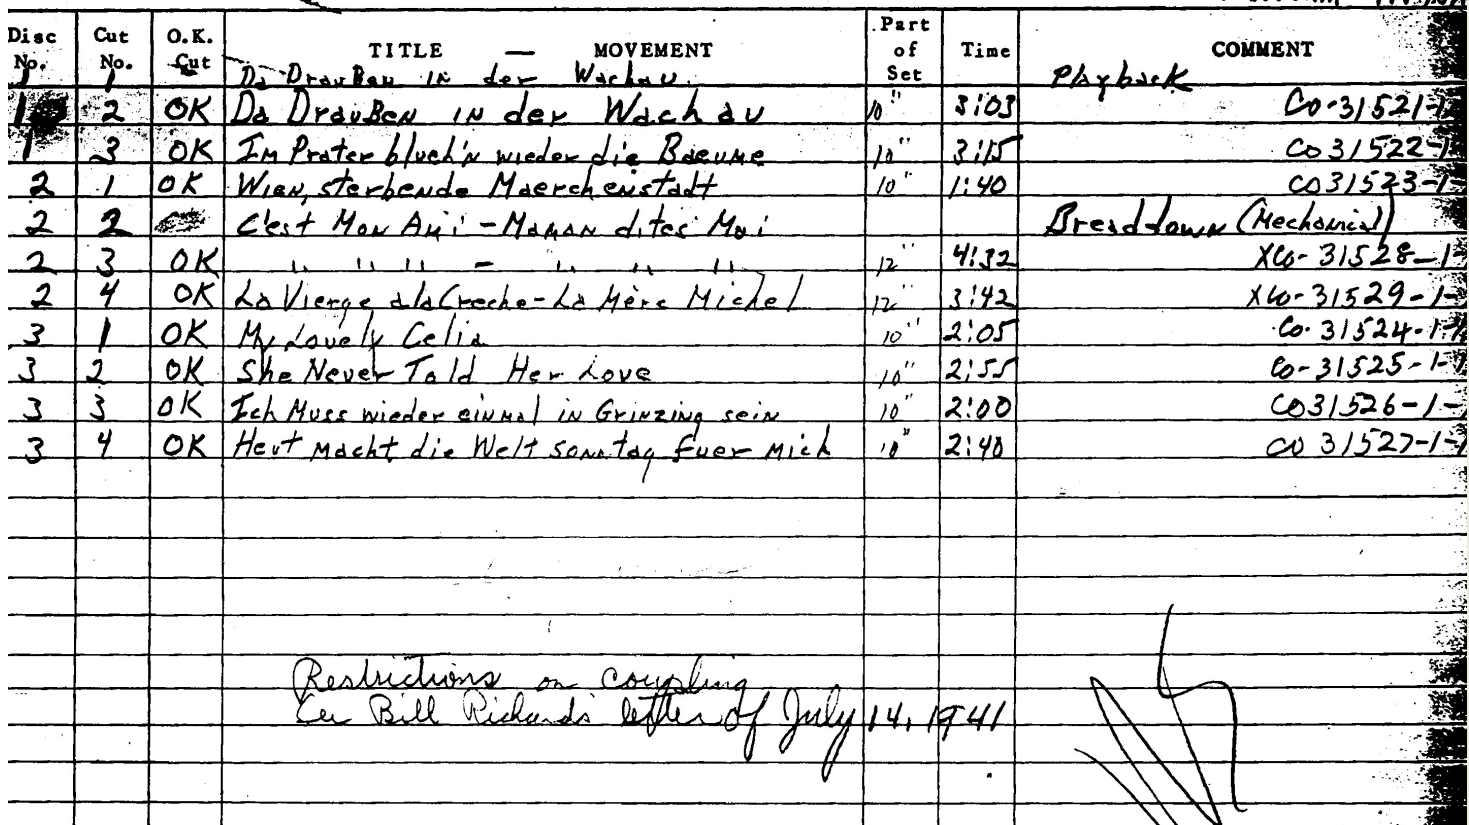 Disc No. Cut No. O.K. Cut TITLE — MOVEMENT Part of Set Time COMMENT
1 1 Da Drauβen in der Wachau. Playback
1 2 OK Da Drauβen in der Wachau 10" 3:03 Co-31521-1
1 3 OK Im Prater blueh'n wieder die Baeume 10" 3:15 Co 31522-1
2 1 OK Wien, sterbende Maerchenstadt 10" 1:40 CO31523-1
2 2 C'est Mon Ami - Maman dites Moi Breakdown (Mechanical)
2 3 OK " " " - " " " 12" 4:32 XCo-31528-1
2 4 OK La Vierge a la Creche - La Mère Michel 12" 3:42 XCo-31529-1-
3 1 OK My Lovely Celia 10" 2:05 Co-31524-1-
3 2 OK She Never Told Her Love 10" 2:55 Co-31525-1-
3 3 OK Ich Muss wieder einmal in Grinzing sein 10" 2:00 CO31526-1-
3 4 OK Heut macht die Welt sonntag fuer mich 10" 2:40 CO 31527-1-
Restrictions on coupling
Bill Richards' letter of July 14, 1941